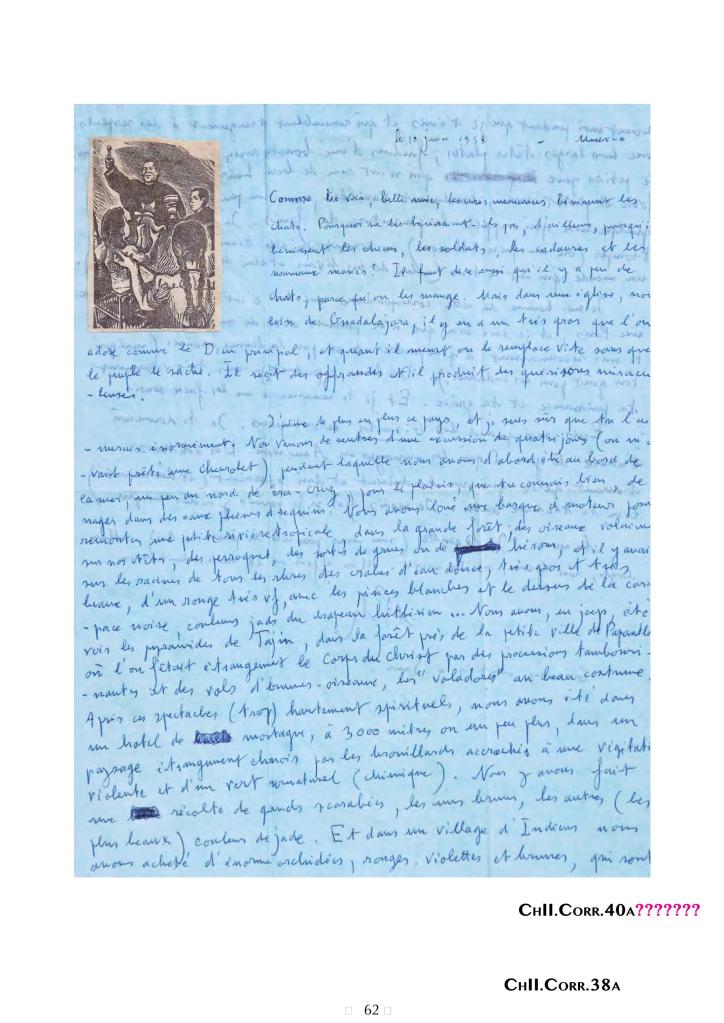 le 10 juin 1958 - Mexico
Comme tu vois, belle amie, les curés mexicains bénissent les
chats. Pourquoi ne les béniraient-ils pas, d'ailleurs, puisqu'
bénissent les chiens, les soldats, les cadavres et les
nouveaux mariés? Il faut dire aussi qu'il y a peu de
chats, parce qu'on les mange. Mais dans une église, non
loin de Guadalajara, il y en a un très gros que l'on
adore comme le Dieu principal, et quand il meurt, on le remplace vite sans que
le peuple le sache. Il reçoit des offrandes et il produit des guérisons miracu
-leuses.
J'aime de plus en plus ce pays, et je suis sûr que tu l'ai
-merais énormément. Nous venons de rentrer d'une excursion de quatre jours (on m'a
-vait prêté une Chevrolet) pendant laquelle nous avons d'abord été au bord de
la mer un peu au nord de Vera-Cruz, pour le plaisir que tu connais bien de
nager dans des eaux pleines de requins. Nous avons loué une barque à moteur pour
remonter une petite rivière tropicale dans la grande forêt; des oiseaux volaient
sur nos têtes, des perroquets, des sortes de grues ou de hérons, et il y avait
sur les racines de tous les arbres des crabes d'eau douce, très gros et très
beaux, d'un rouge très vif, avec les pinces blanches et le dessus de la cara
-pace noire, couleurs jadis du drapeau hitlérien... Nous avons, en jeep, été
voir les pyramides de Tajin, dans la forêt près de la petite ville de Papantla
où l'on fêtait étrangement le Corps du Christ par des processions tambouri-
-nantes et des vols d'hommes-oiseaux, les "voladores" au beau costume.
Après ces spectacles (trop) hautement spirituels, nous avons été dans
un hôtel de montagne, à 3000 mètres ou un peu plus, dans un
paysage étrangement chinois par les brouillards accrochés à une végétati
violente et d'un vert surnaturel (chimique). Nous y avons fait
une récolte de grands scarabées, les uns bruns, les autres (les
plus beaux) couleur de jade. Et dans un village d'Indiens nous
avons acheté d'énormes orchidées, rouges, violettes et brunes, qui sont
ChII.Corr.40a???????
ChII.Corr.38a
62